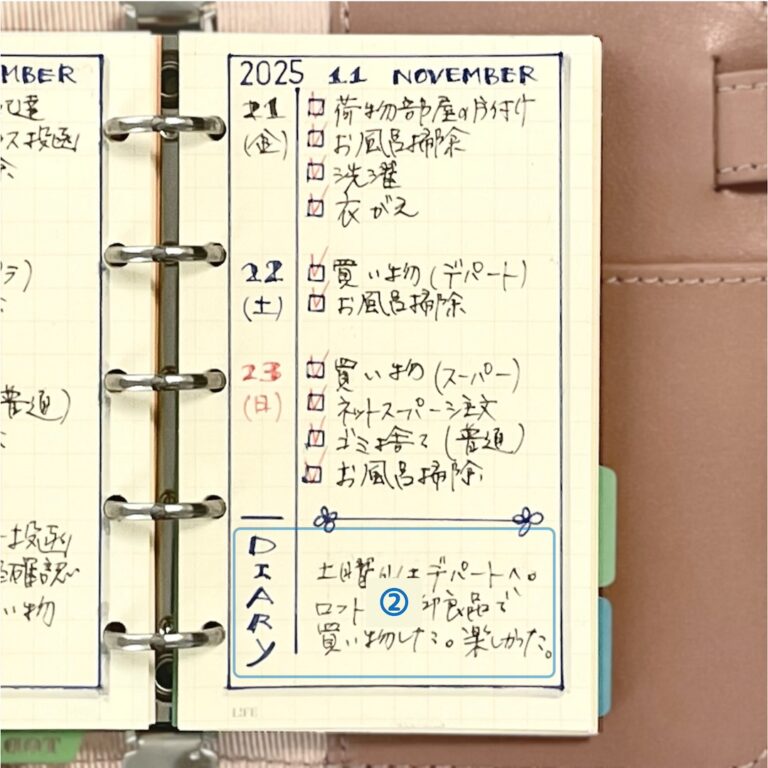 MBER
2025 11 NOVEMBER
21
(金)
荷物部屋の片付け
お風呂掃除
洗濯
衣がえ
22
(土)
買い物(デパート)
お風呂掃除
23
(日)
買い物(スーパー)
ネットスーパー注文
ゴミ捨て(普通)
お風呂掃除
DIARY
土曜日はデパートへ。
ロフト ② 印良品で
買い物した。楽しかった。
LIFE
ス投函
普通)
投函
確認
い物